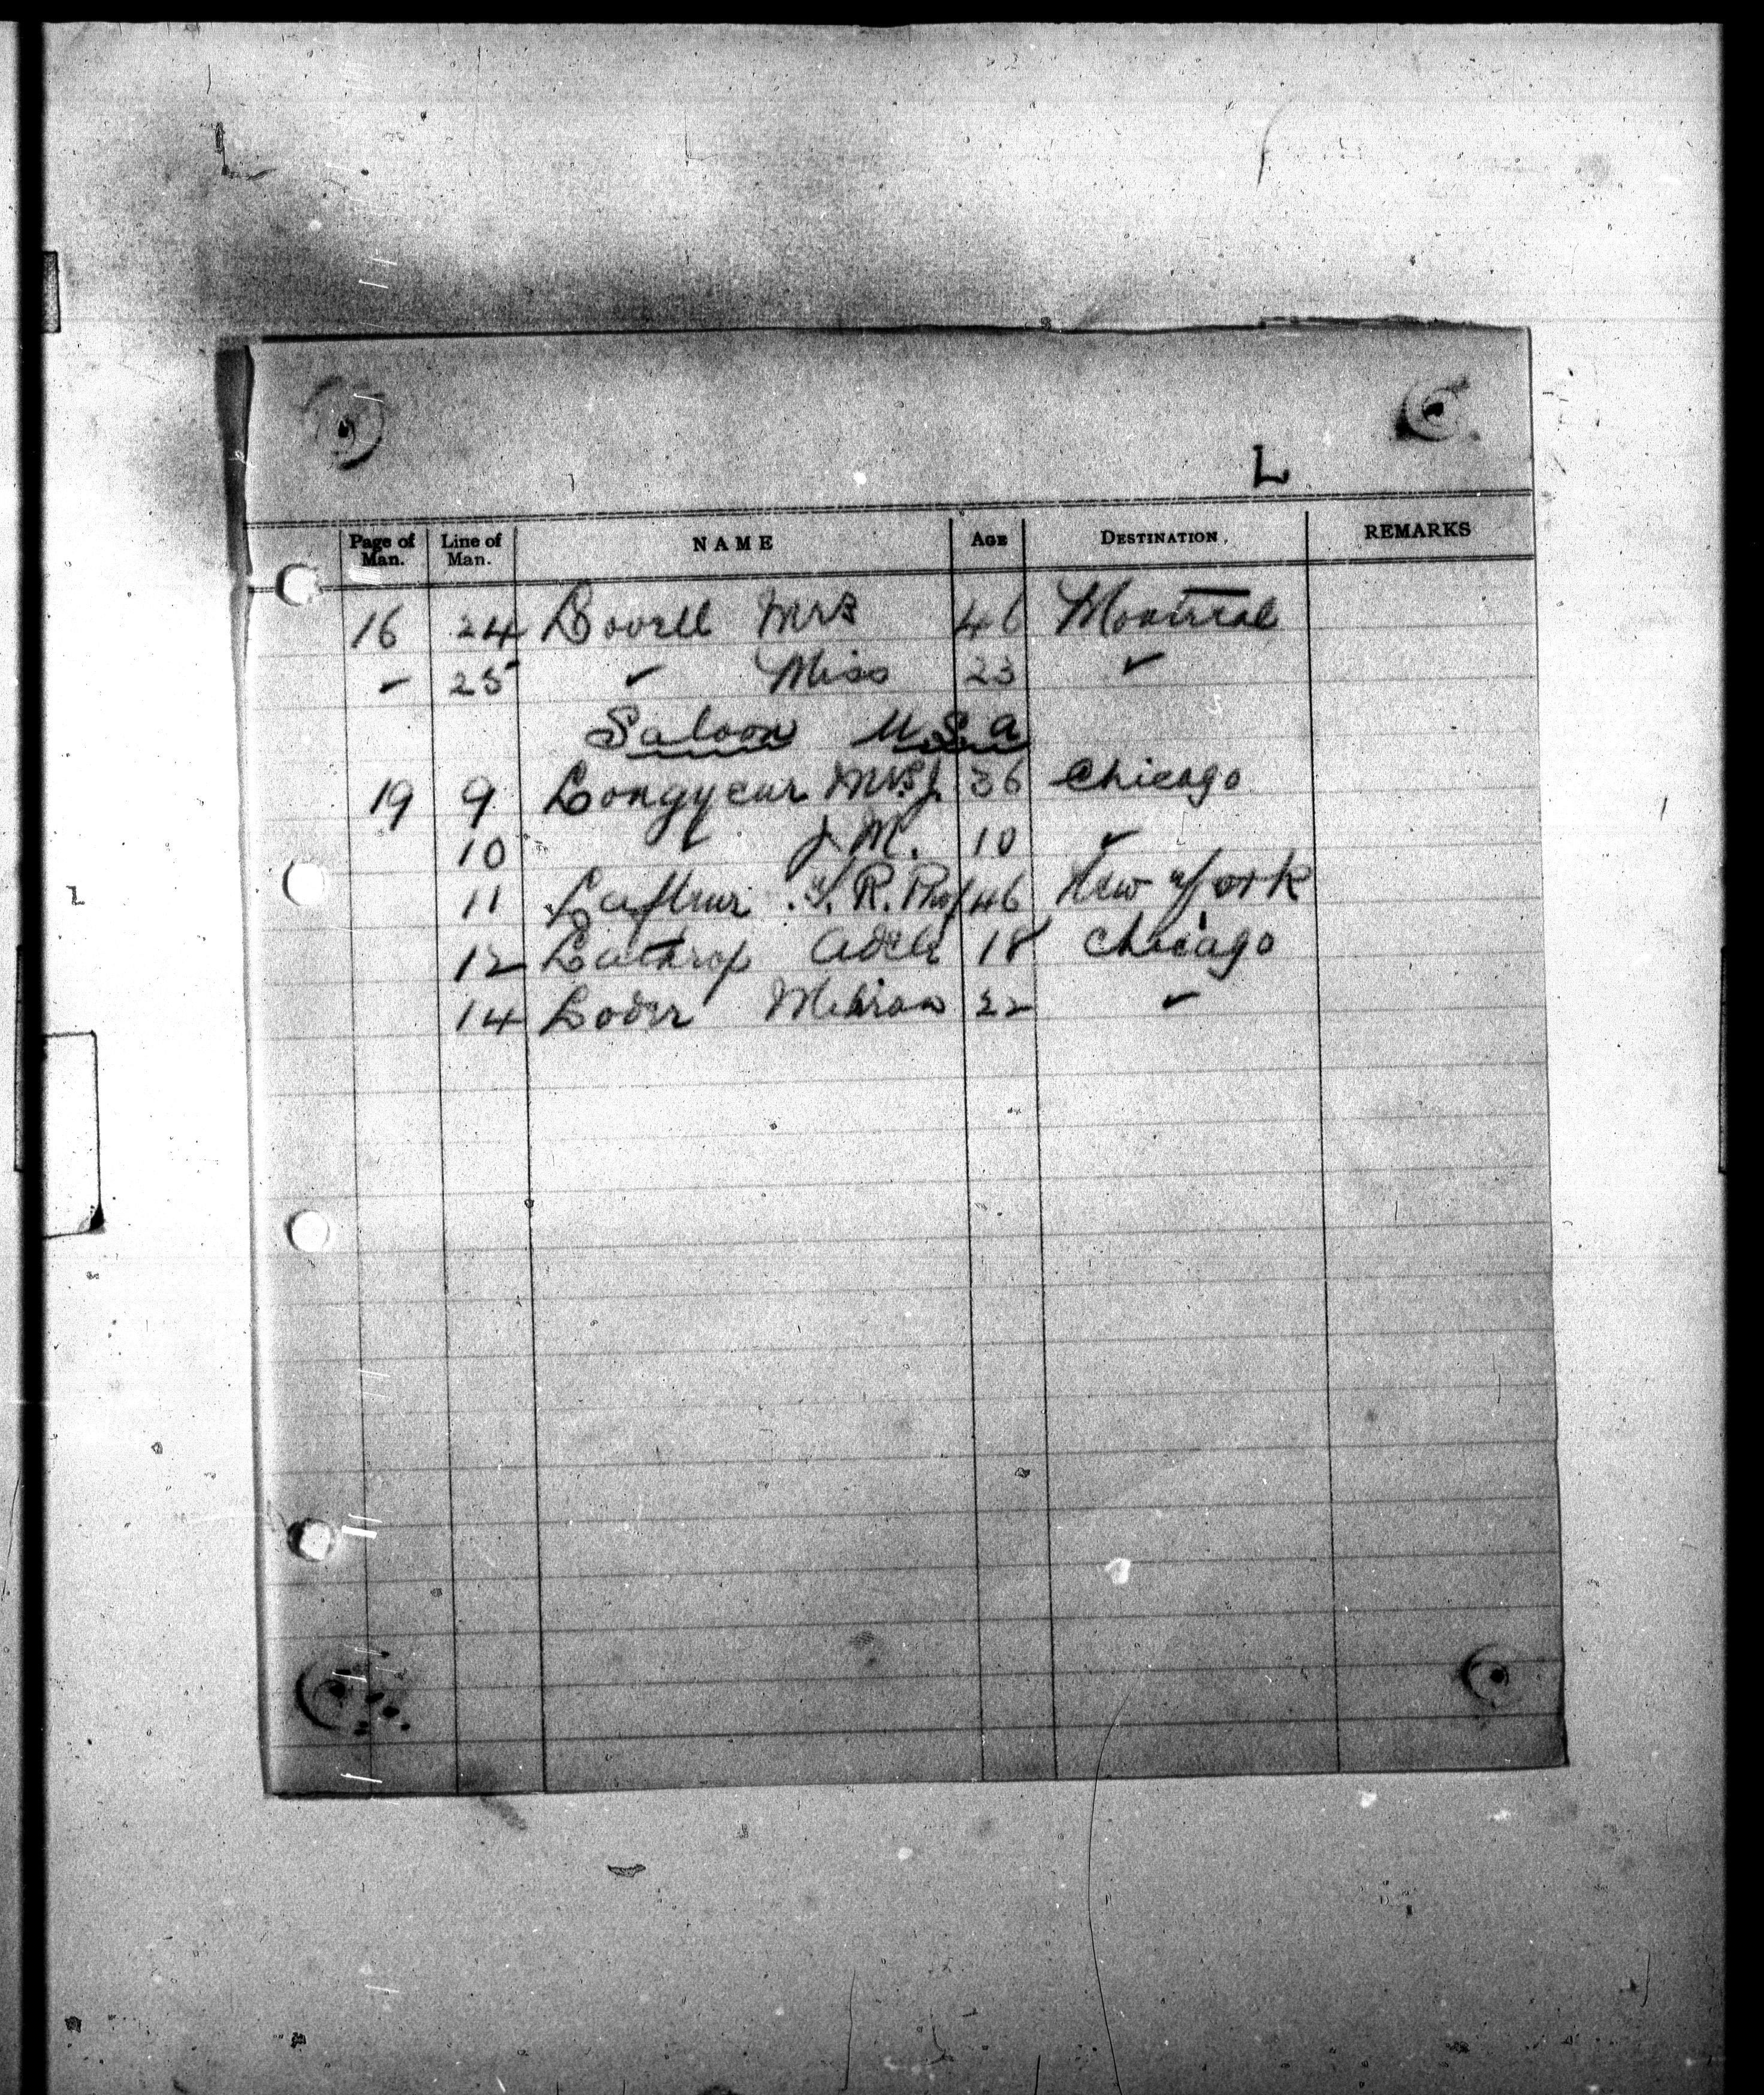 L
Page of Man. Line of Man. NAME AGE DESTINATION. REMARKS
16 24 Lovell Mrs 46 Montreal
" 25 " Miss 23 "
Saloon U.S.A
19 9 Longyear Mrs J. 36 Chicago
10 " J. M. 10 "
11 R. Prof 46 New York
12 Lathrop Adele 18 Chicago
14 Loder 22 "